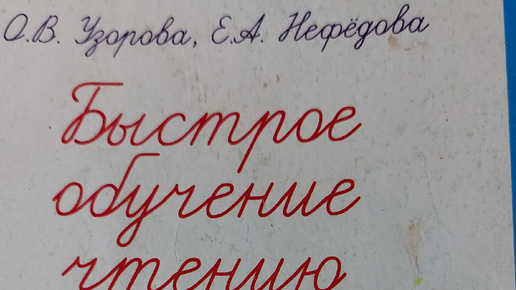 О.В. Узорова, Е.А. Нефёдова
Быстрое
обучение
чтению